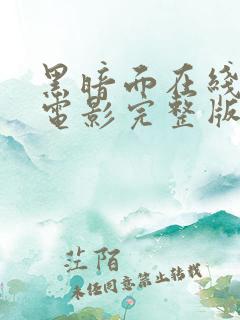 黑暗而在线
电影完整版
茳陌
未经同意禁止转载